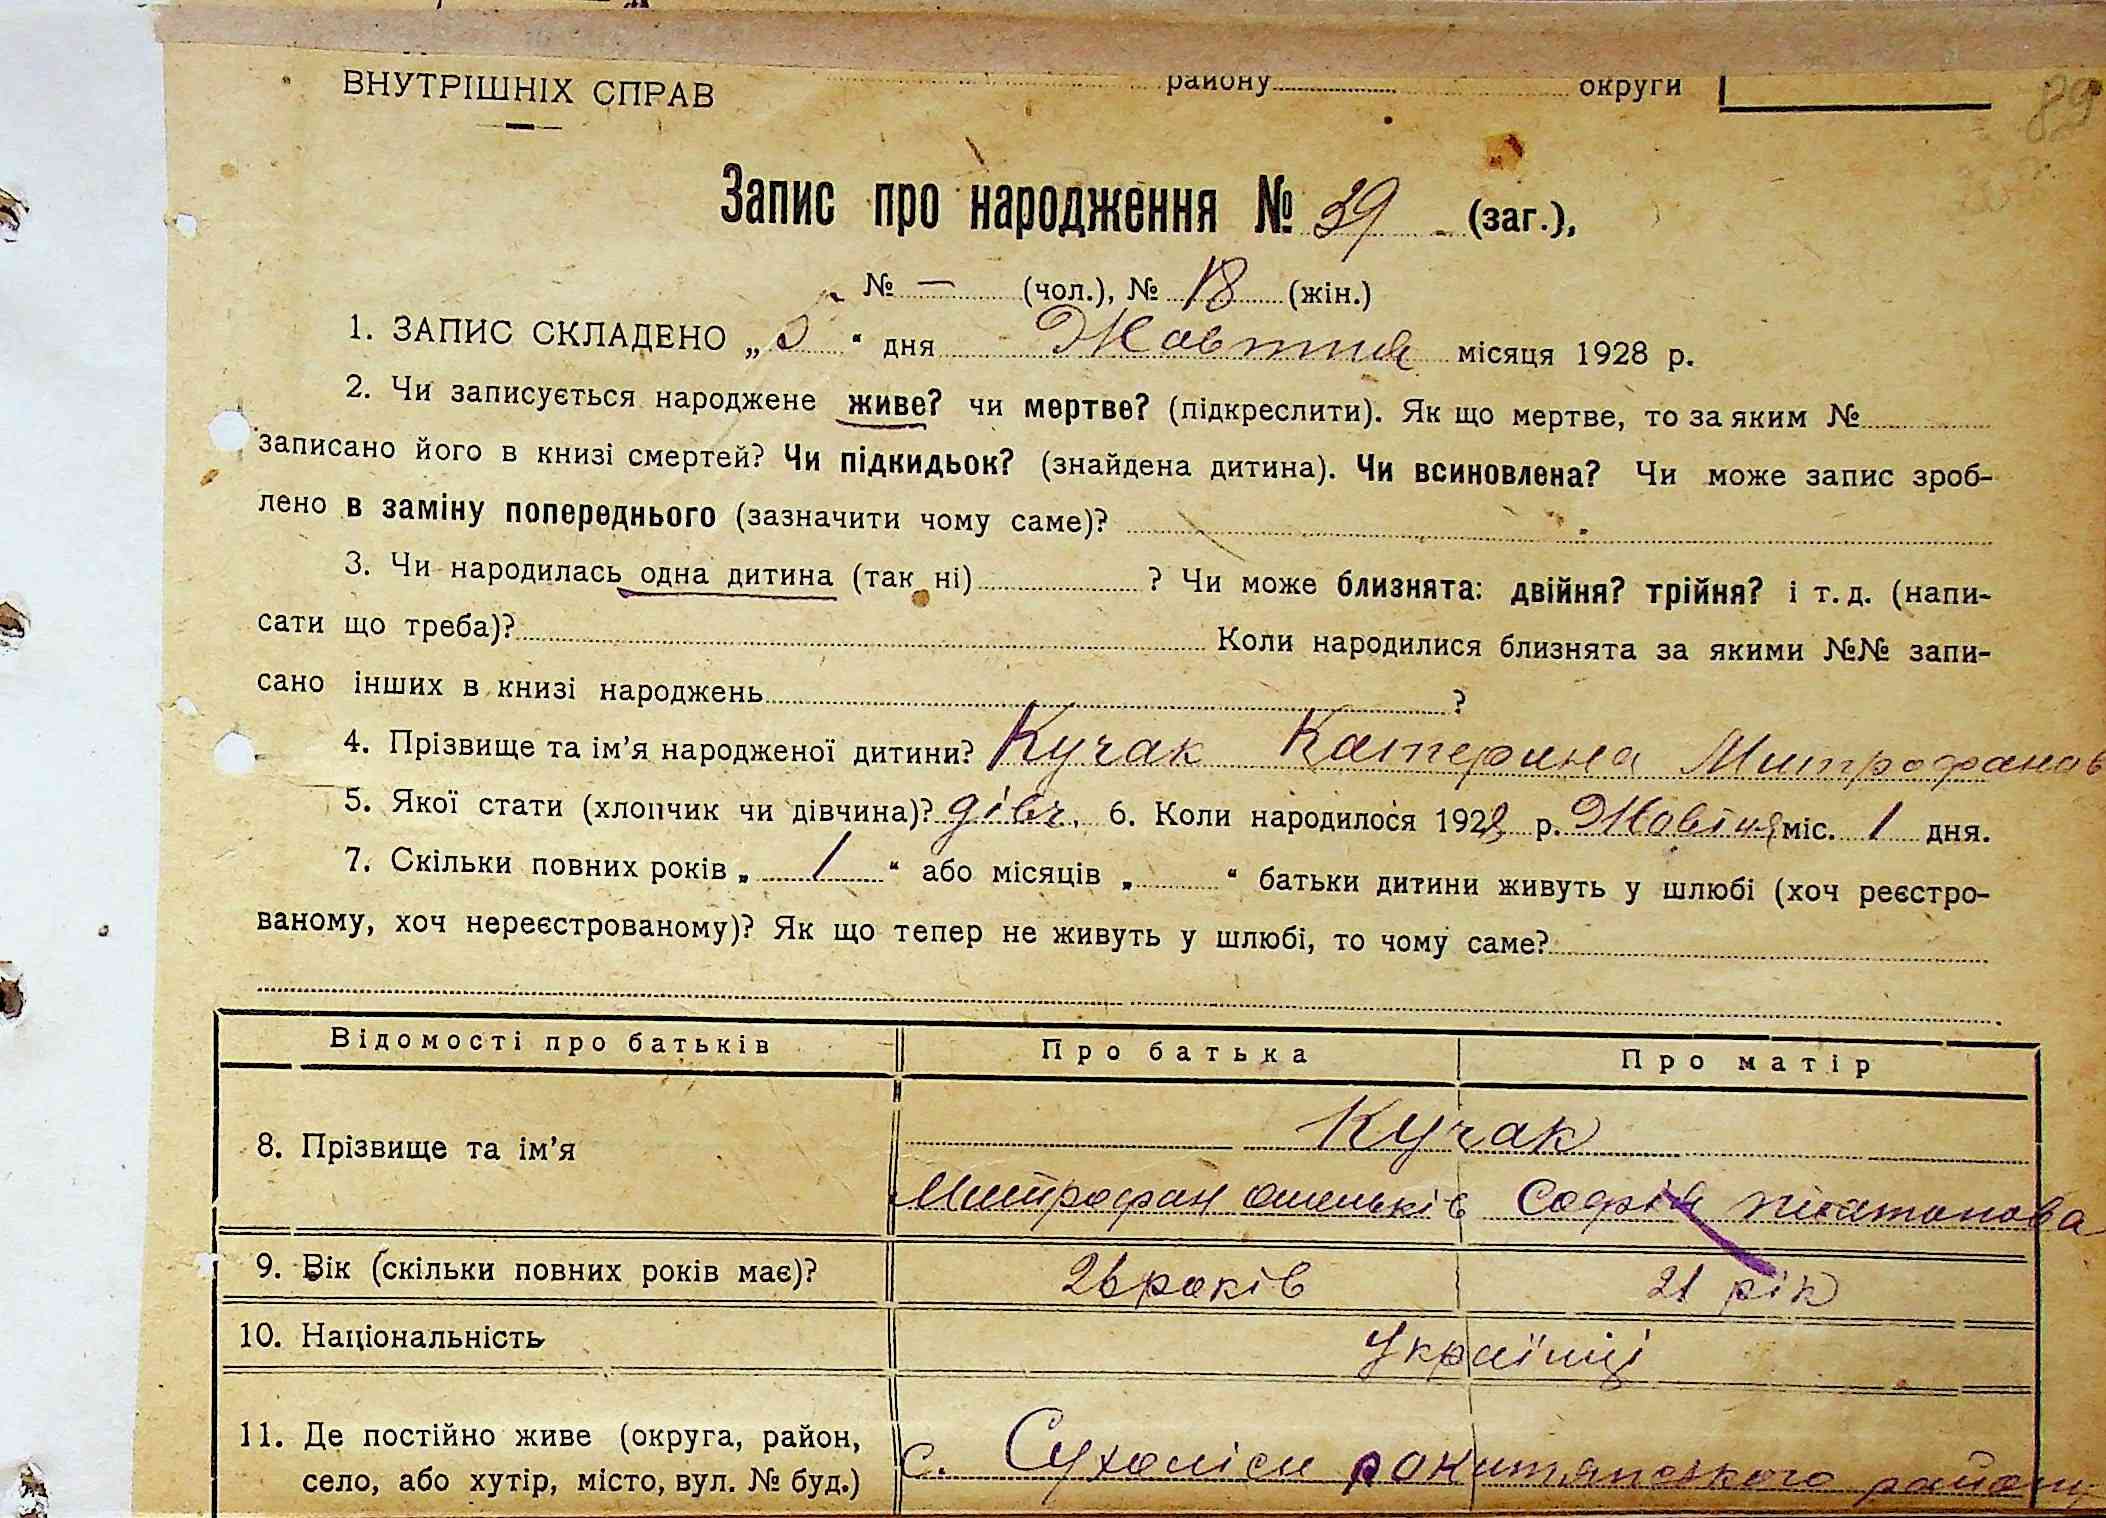 ВНУТРІШНІХ СПРАВ району округи
89
Запис про народження № 39 (заг.),
№ — (чол.), № 18 (жін.)
1. ЗАПИС СКЛАДЕНО „5“ дня Жовтня місяця 1928 р.
2. Чи записується народжене живе? чи мертве? (підкреслити). Як що мертве, то за яким №
записано його в книзі смертей? Чи підкидьок? (знайдена дитина). Чи всиновлена? Чи може запис зроб-
лено в заміну попереднього (зазначити чому саме)?
3. Чи народилась одна дитина (так ні) ? Чи може близнята: двійня? трійня? і т. д. (напи-
сати що треба)? Коли народилися близнята за якими №№ запи-
сано інших в книзі народжень ?
4. Прізвище та ім'я народженої дитини? Кучак Катерина Митрофанов
5. Якої стати (хлопчик чи дівчина)? дівч. 6. Коли народилося 1928 р. Жовтня міс. 1 дня.
7. Скільки повних років „ 1 “ або місяців „ “ батьки дитини живуть у шлюбі (хоч реєстро-
ваному, хоч нереєстрованому)? Як що тепер не живуть у шлюбі, то чому саме?
Відомості про батьків Про батька Про матір
8. Прізвище та ім'я Кучак
Митрофан Софія
9. Вік (скільки повних років має)? 26 років 21 рік
10. Національність Українці
11. Де постійно живе (округа, район,
село, або хутір, місто, вул. № буд.) с. Сухоліси рокитянського району